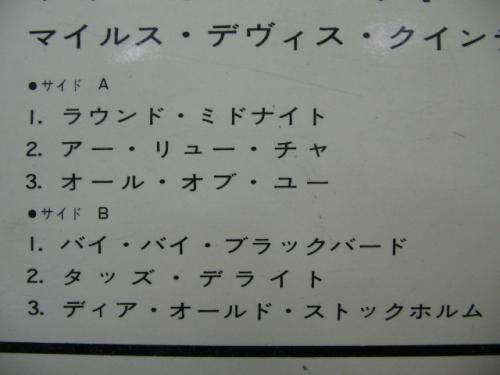 マイルス・デヴィス・クイン
●サイド A
1. ラウンド・ミドナイト
2. アー・リュー・チャ
3. オール・オブ・ユー
●サイド B
1. バイ・バイ・ブラックバード
2. タッズ・デライト
3. ディア・オールド・ストックホルム